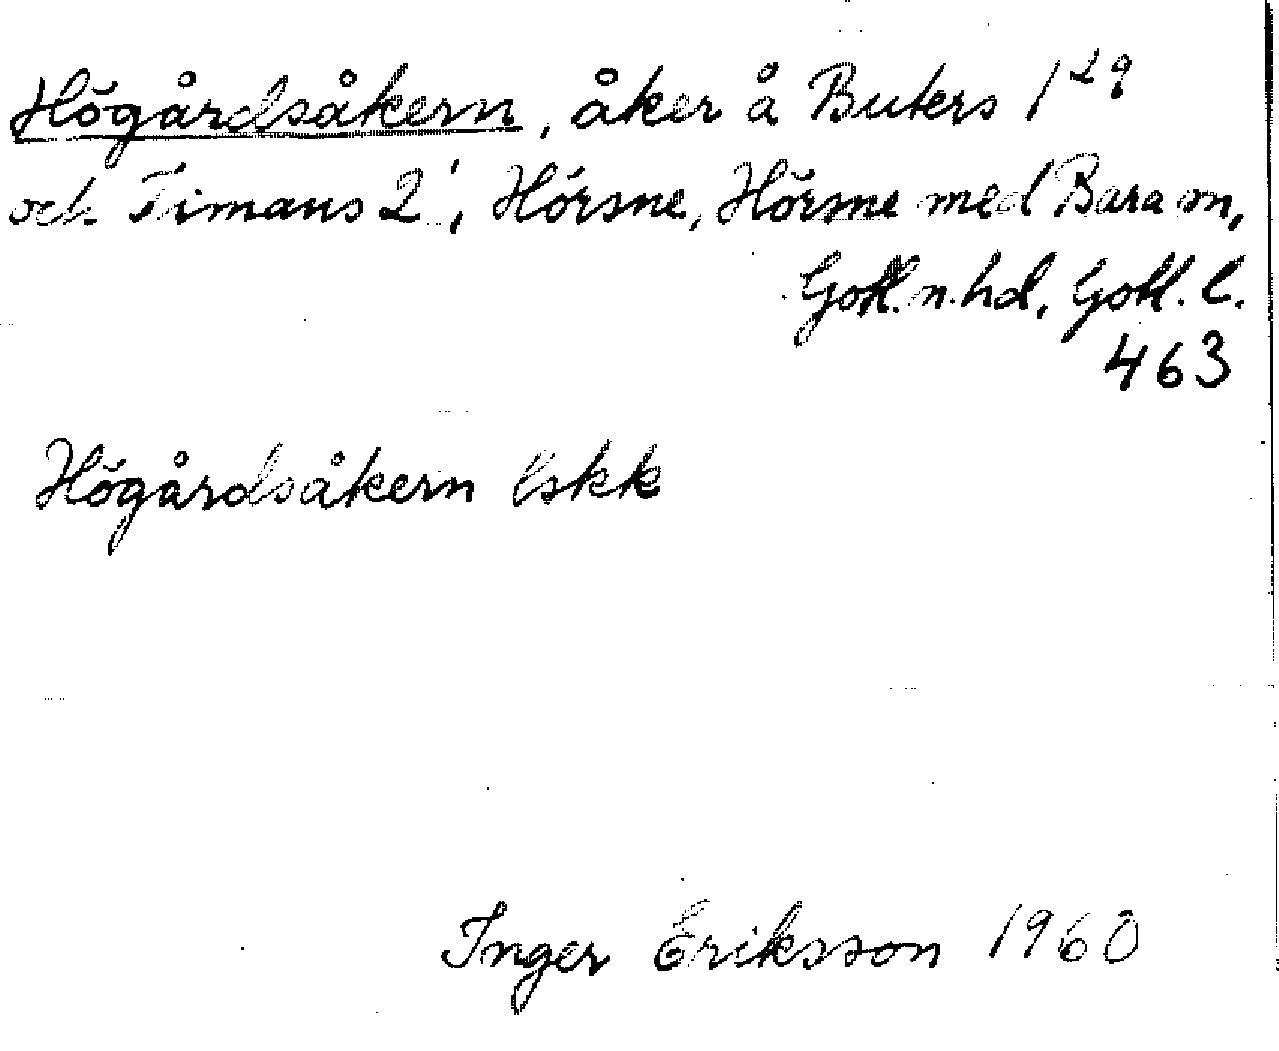 Högårdsåkern, åker å Buters 1²⁹
och Timans 2¹, Hörsne, Hörsne med Bara sn,
Gotl. n. hd, Gotl. l.
463
Högårdsåkern lskk
Inger Eriksson 1960